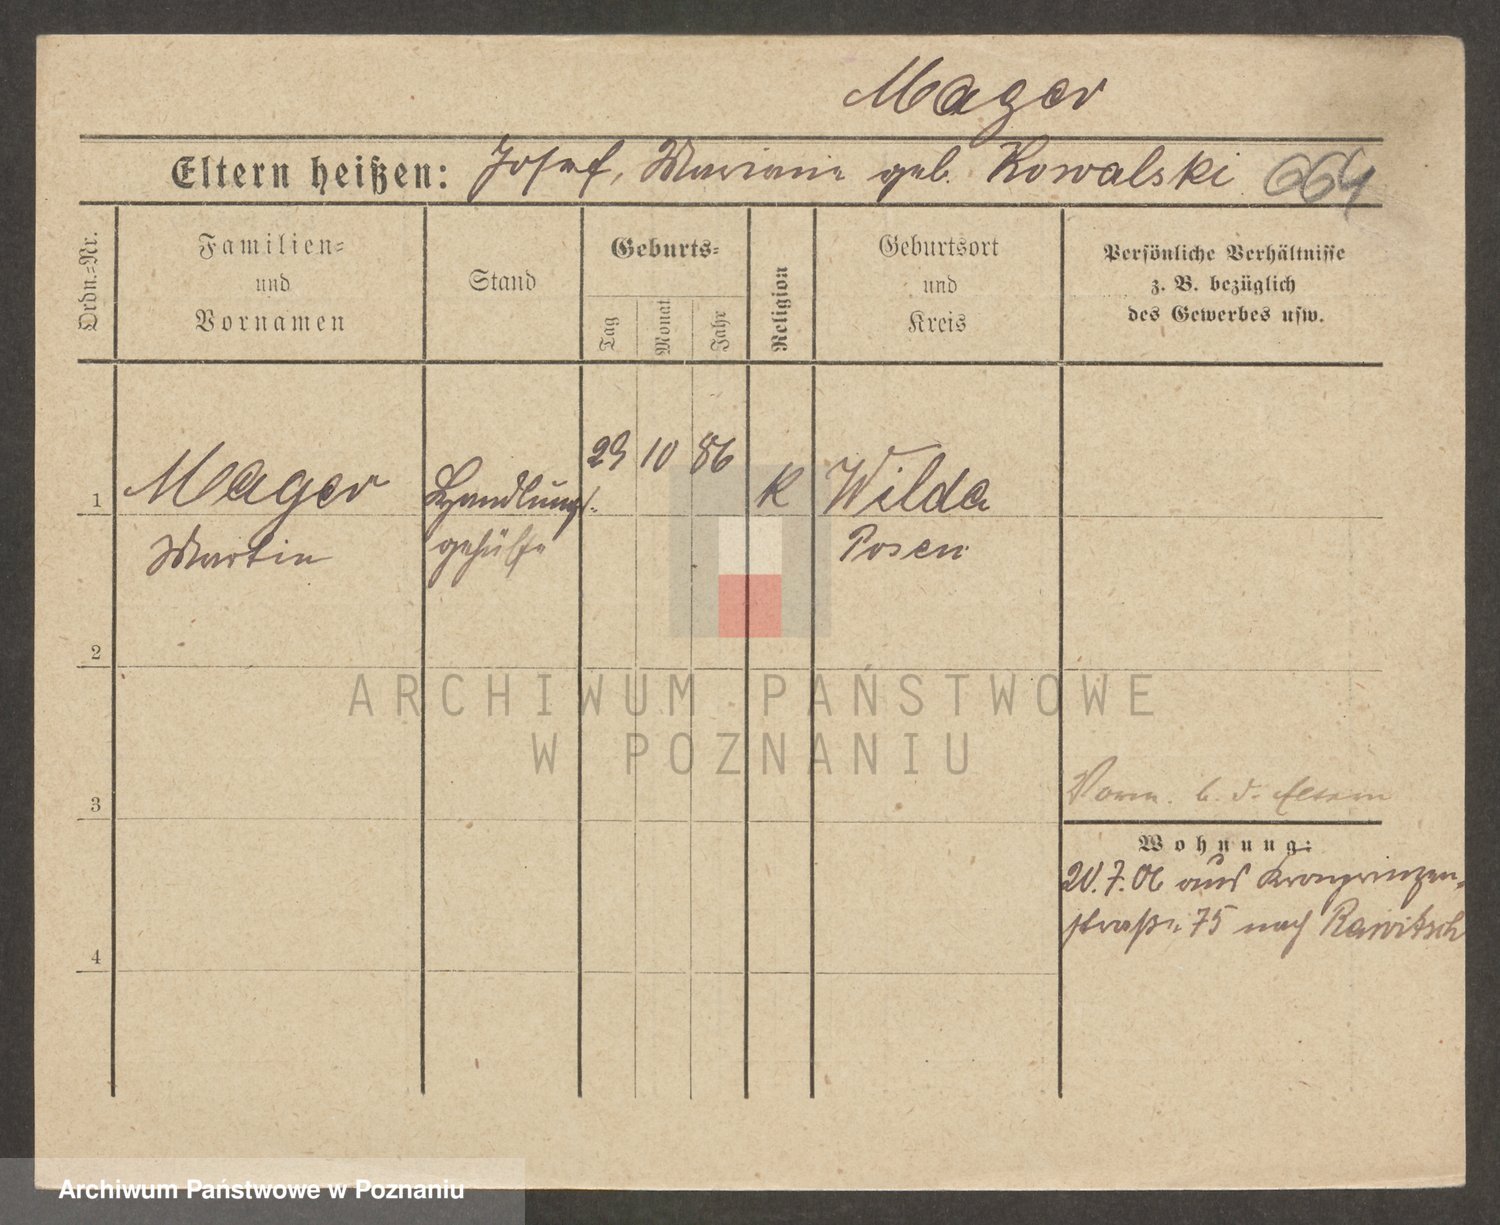 Mager
Eltern heißen: Josef, Mariane geb. Kowalski 664
Ordn.-Nr.
Familien-
und
Vornamen
Stand
Geburts-
Tag
Monat
Jahr
Religion
Geburtsort
und
Kreis
Persönliche Verhältnisse
z. B. bezüglich
des Gewerbes usw.
1 Mager Handlungs- 29 10 86 K Wilda
Martin gehülfe Posen
2
ARCHIWUM PAŃSTWOWE
W POZNANIU
3 b. d. Eltern
Wohnung:
20.7.06 aus Kronprinzen-
straße 75 nach Rawitsch
4
Archiwum Państwowe w Poznaniu